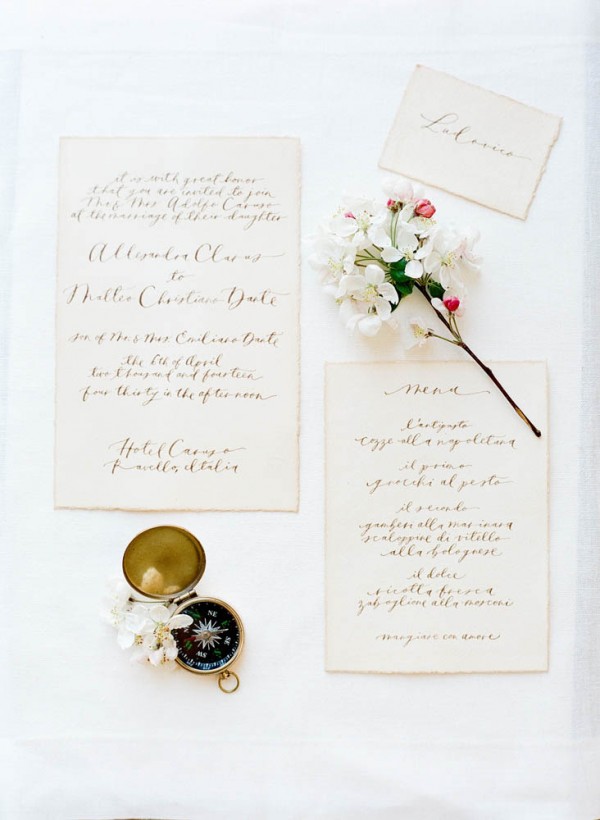 it is with great honor
that you are invited to join
Mr & Mrs. Adolfo Caruso
at the marriage of their daughter
Allesandra Claruso
to
Matteo Christiano Dante
son of Mr. & Mrs. Emiliano Dante
the 6th of April
two thousand and fourteen
four thirty in the afternoon
Hotel Caruso
Ravello, Italia
Ludovico
menu
l'antipasto
cozze alla napoletana
il primo
gnocchi al pesto
il secondo
gamberi alla marinara
scaloppine di vitello
alla bolognese
il dolce
ricotta fresca
zabaglione alla mosconi
mangiare con amore
NE
SW